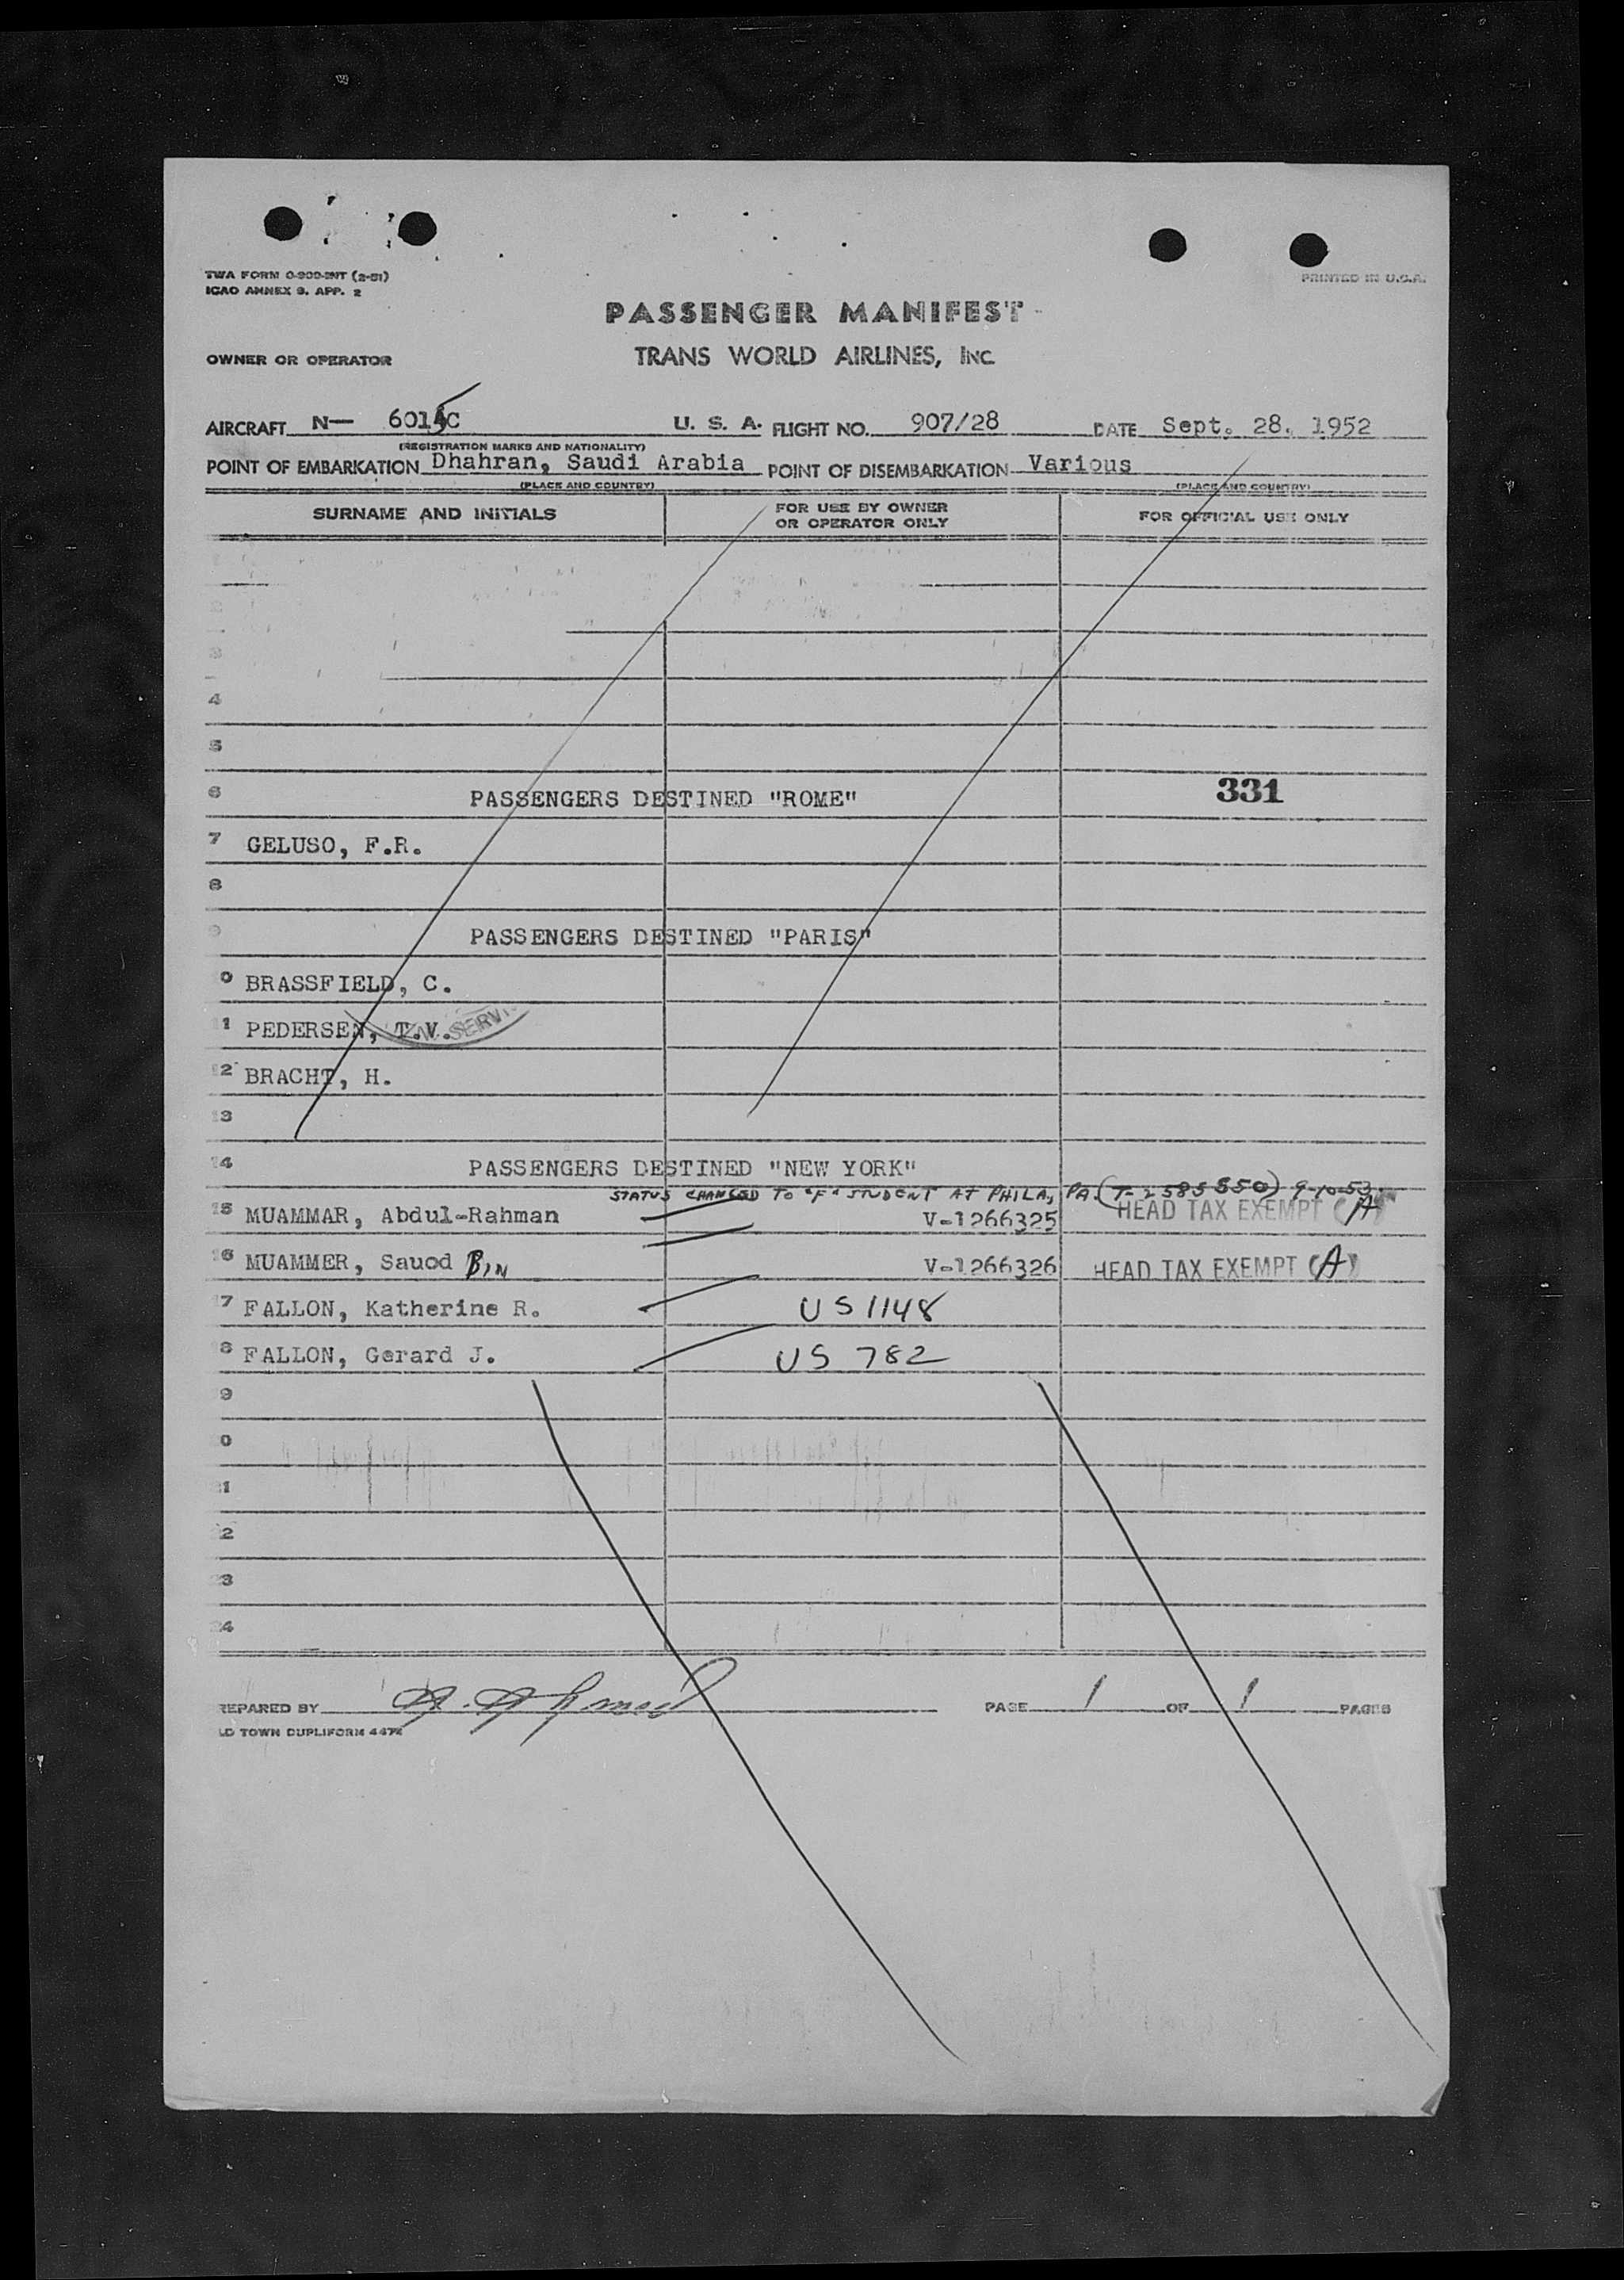 TWA FORM O-900-INT (2-51)
ICAO ANNEX 9. APP. 2
PRINTED IN U.S.A.
PASSENGER MANIFEST
OWNER OR OPERATOR TRANS WORLD AIRLINES, INC
AIRCRAFT N— 6015C U. S. A. FLIGHT NO. 907/28 DATE Sept. 28. 1952
(REGISTRATION MARKS AND NATIONALITY)
POINT OF EMBARKATION Dhahran, Saudi Arabia POINT OF DISEMBARKATION Various
(PLACE AND COUNTRY) (PLACE AND COUNTRY)
SURNAME AND INITIALS FOR USE BY OWNER OR OPERATOR ONLY FOR OFFICIAL USE ONLY
3
4
5
6 PASSENGERS DESTINED "ROME" 331
7 GELUSO, F.R.
8
9 PASSENGERS DESTINED "PARIS"
0 BRASSFIELD, C.
11 PEDERSEN, T.V. SERVI
12 BRACHT, H.
13
14 PASSENGERS DESTINED "NEW YORK"
STATUS CHANGED TO "F" STUDENT AT PHILA, PA. (T-2585550) 9-10-53.
15 MUAMMAR, Abdul-Rahman V-1266325 HEAD TAX EXEMPT (A)
16 MUAMMER, Sauod BIN V-1266326 HEAD TAX EXEMPT (A)
17 FALLON, Katherine R. US 1148
8 FALLON, Gerard J. US 782
9
0
21
22
23
24
REPARED BY PAGE 1 OF 1 PAGES
LD TOWN DUPLIFORM 447K